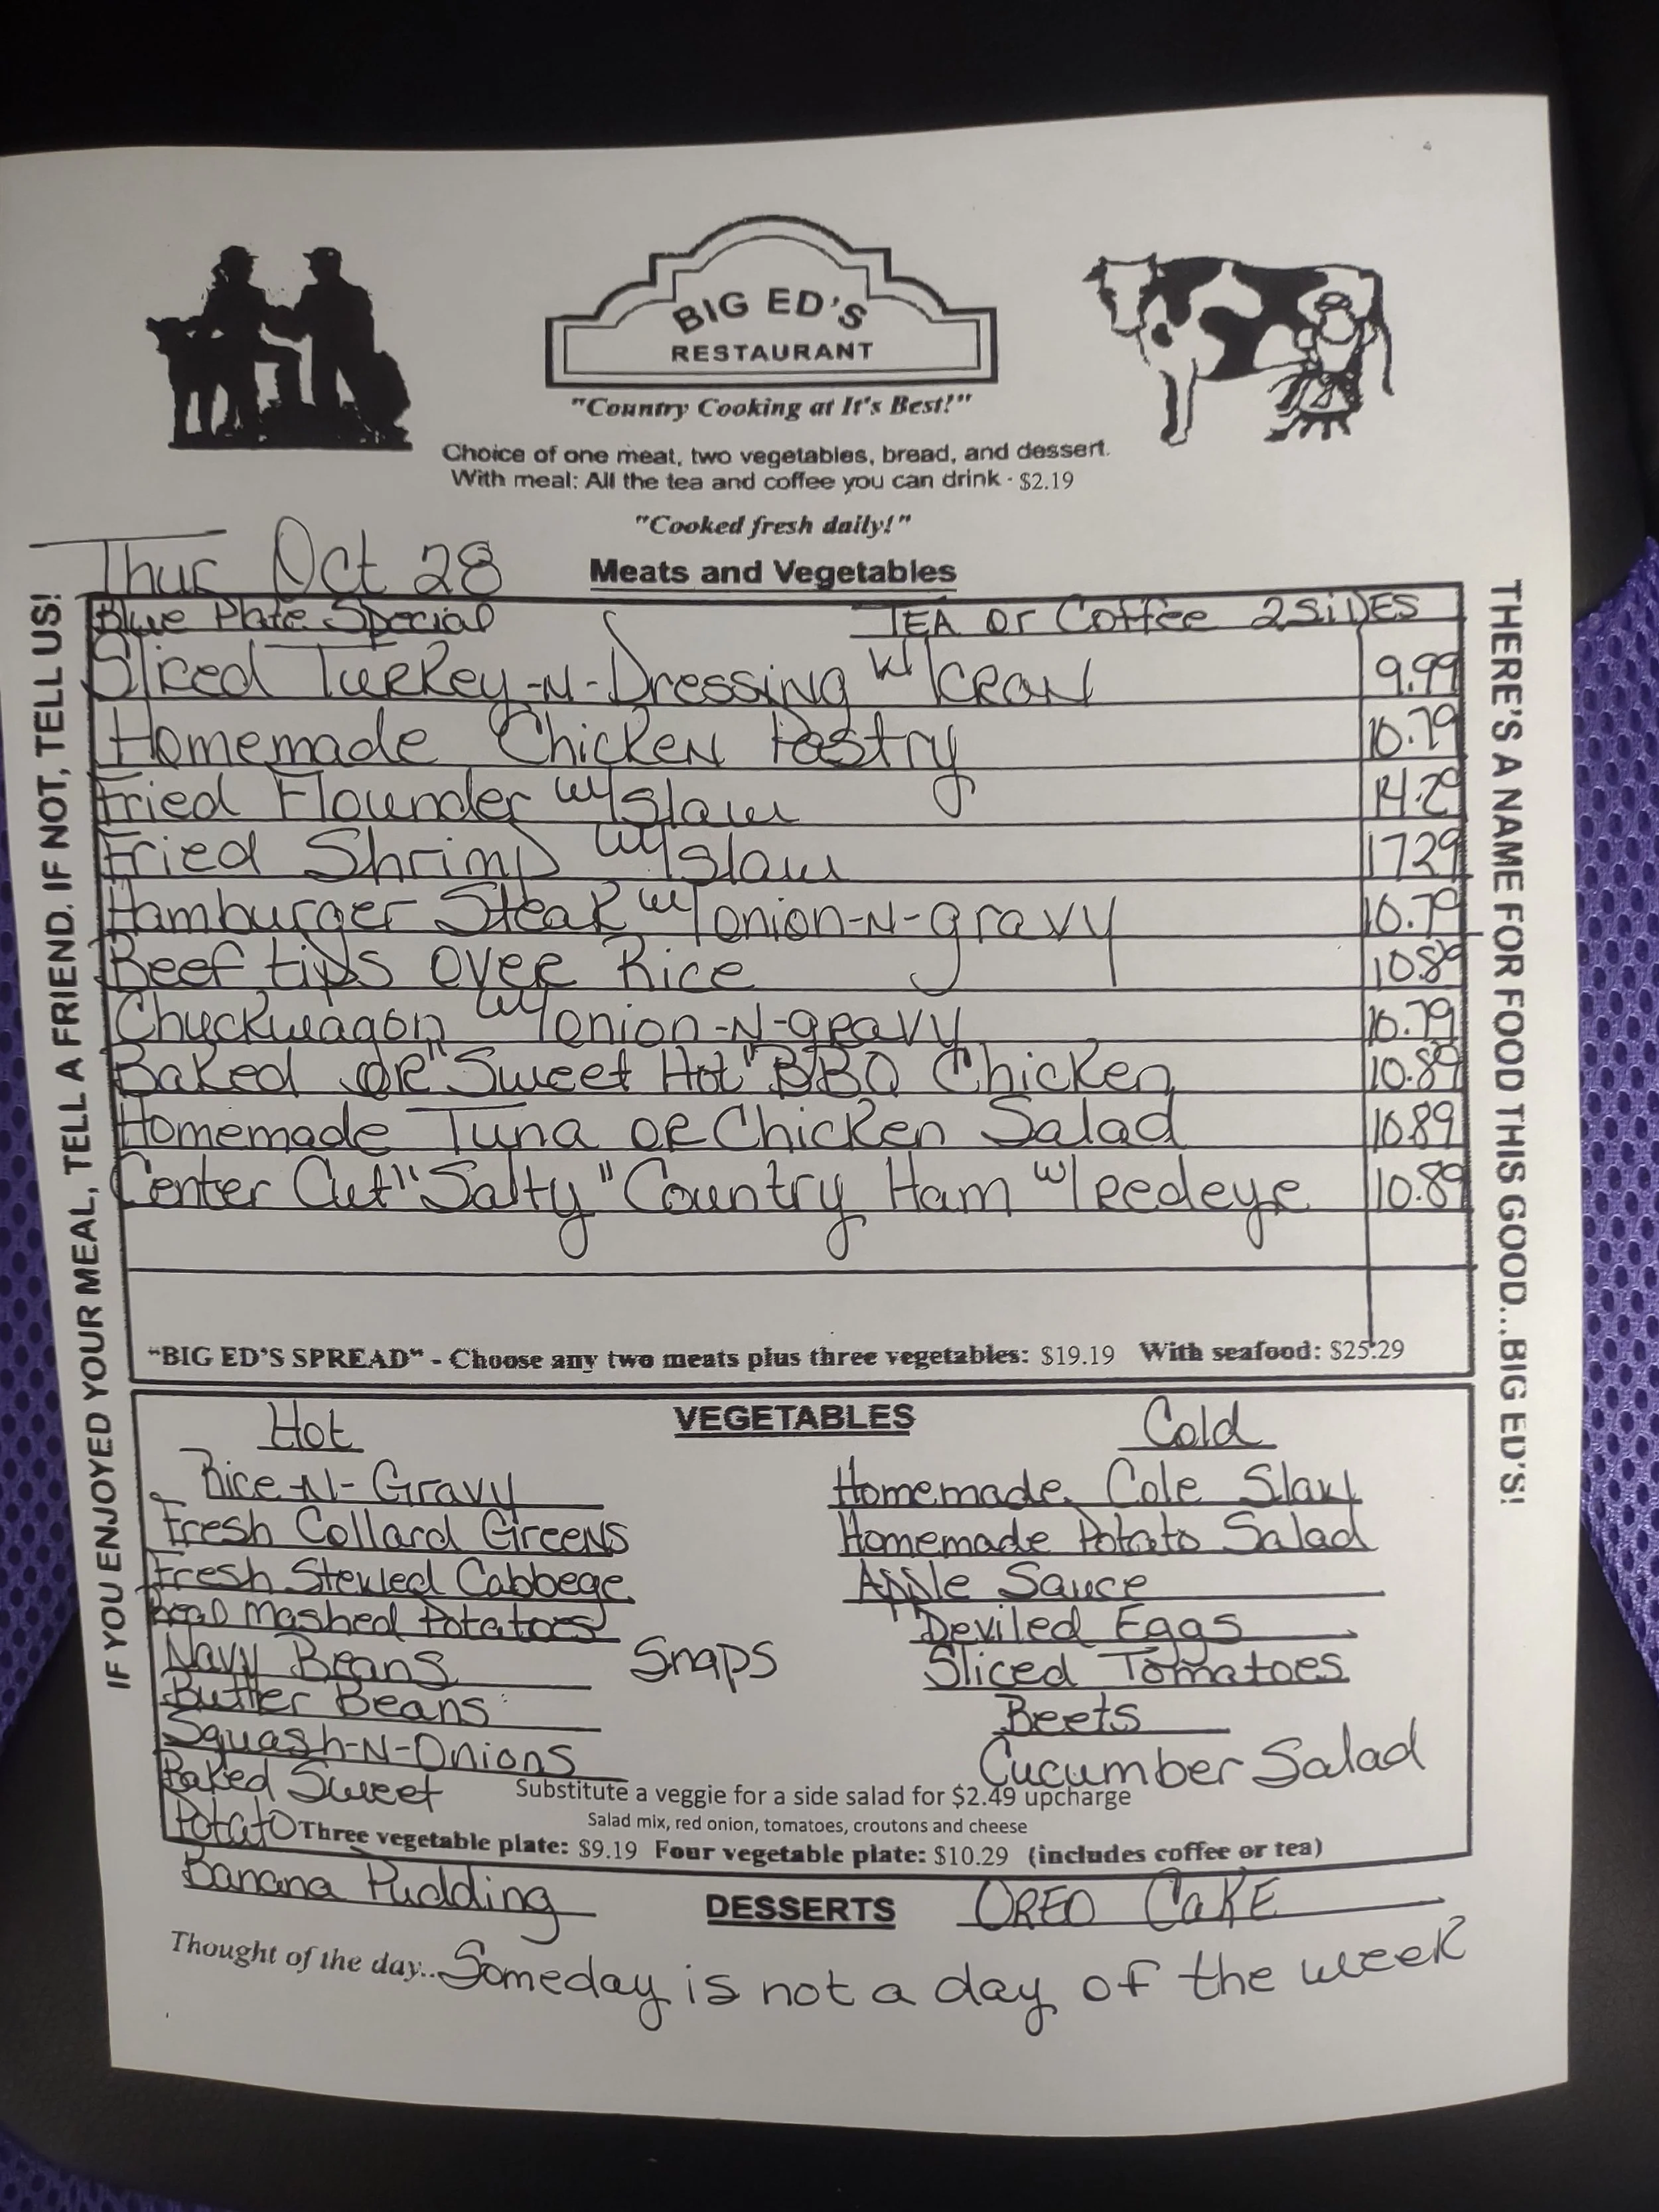 BIG ED'S
RESTAURANT
"Country Cooking at It's Best!"
Choice of one meat, two vegetables, bread, and dessert.
With meal: All the tea and coffee you can drink - $2.19
"Cooked fresh daily!"
Thur Oct 28
Meats and Vegetables
Blue Plate Special TEA or Coffee 2 SiDES
Sliced Turkey-N-Dressing w/ CRAN 9.99
Homemade Chicken Pastry 10.79
Fried Flounder w/ slaw 14.29
Fried Shrimp w/ slaw 1729
Hamburger Steak w/ onion-N-gravy 10.79
Beef tips over Rice 10.89
Chuckwagon w/ onion-N-gravy 10.79
Baked or "Sweet Hot" BBQ Chicken 10.89
Homemade Tuna or Chicken Salad 10.89
Center Cut "Salty" Country Ham w/ reedeye 10.89
"BIG ED'S SPREAD" - Choose any two meats plus three vegetables: $19.19 With seafood: $25.29
VEGETABLES
Hot
Rice-N-Gravy
Fresh Collard Greens
Fresh Stewed Cabbege
Real Mashed Potatoes
Navy Beans
Snaps
Butter Beans
Squash-N-Onions
Baked Sweet
Potato
Cold
Homemade Cole Slaw
Homemade Potato Salad
Apple Sauce
Deviled Eggs
Sliced Tomatoes
Beets
Cucumber Salad
Substitute a veggie for a side salad for $2.49 upcharge
Salad mix, red onion, tomatoes, croutons and cheese
Three vegetable plate: $9.19 Four vegetable plate: $10.29 (includes coffee or tea)
Banana Pudding DESSERTS OREO CaKE
Thought of the day.. Someday is not a day of the week
IF YOU ENJOYED YOUR MEAL, TELL A FRIEND. IF NOT, TELL US!
THERE'S A NAME FOR FOOD THIS GOOD...BIG ED'S!